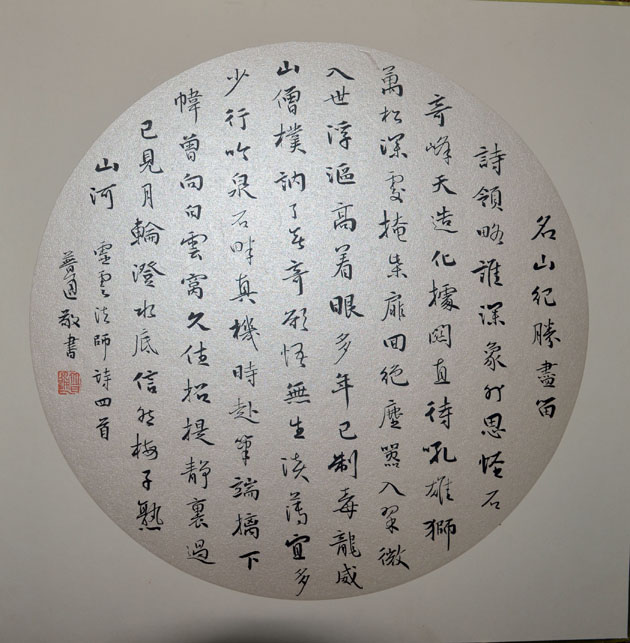 名山紀勝盡留
詩領略誰深象外思怪石
奇峰天造化據關直待吼雄獅
萬松深處掩柴扉迥絕塵囂入翠微
入世浮漚高着眼多年已制毒龍威
山僧樸訥了無奇悟無生淡薄宜多
少行吟泉石畔真機時赴筆端摛下
幃曾向白雲窩久住招提靜裏過
已見月輪澄水底信然梅子熟
山河 靈雲法師詩四首
普通敬書